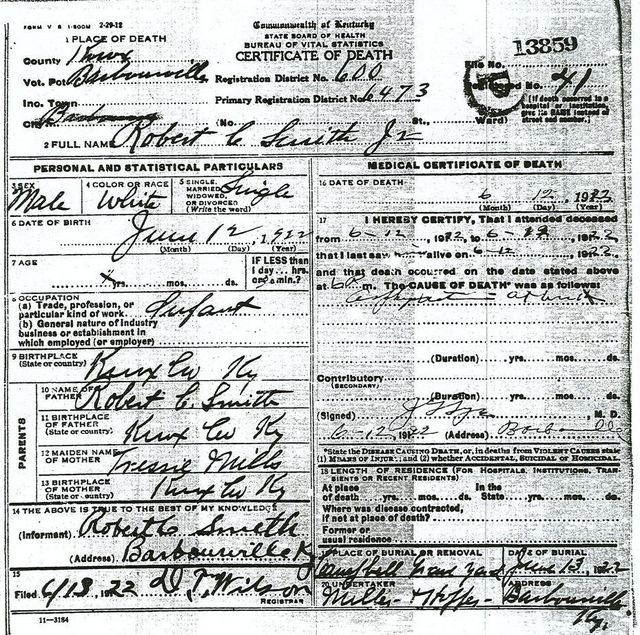 FORM V S 1-500M 2-29-12
Commonwealth of Kentucky
STATE BOARD OF HEALTH
BUREAU OF VITAL STATISTICS
CERTIFICATE OF DEATH
1 PLACE OF DEATH
County Knox
Vot. Pct Barbourville
Inc. Town
City
Registration District No. 600
Primary Registration District No. 6473
File No. 13859
No. 41
(If death occurred in a hospital or institution, give its NAME instead of street and number.)
(No. St., Ward)
2 FULL NAME Robert C Smith Jr
PERSONAL AND STATISTICAL PARTICULARS
3 SEX Male
4 COLOR OR RACE White
5 SINGLE, MARRIED, WIDOWED, OR DIVORCED (Write the word) Single
6 DATE OF BIRTH June 12, 1922
(Month) (Day) (Year)
7 AGE
yrs. mos. ds.
IF LESS than 1 day... hrs. or min.?
8 OCCUPATION
(a) Trade, profession, or particular kind of work Infant
(b) General nature of industry business or establishment in which employed (or employer)
9 BIRTHPLACE (State or country) Knox Co Ky
PARENTS
10 NAME OF FATHER Robert C. Smith
11 BIRTHPLACE OF FATHER (State or country) Knox Co Ky
12 MAIDEN NAME OF MOTHER Tressie Mills
13 BIRTHPLACE OF MOTHER (State or country) Knox Co Ky
14 THE ABOVE IS TRUE TO THE BEST OF MY KNOWLEDGE
(Informant) Robert C Smith
(Address) Barbourville Ky
15
Filed 6/13, 1922
REGISTRAR
11-3184
MEDICAL CERTIFICATE OF DEATH
16 DATE OF DEATH
6 12 1922
(Month) (Day) (Year)
17 I HEREBY CERTIFY, That I attended deceased
from 6-12, 1922, to 6-12, 1922
that I last saw alive on 6-12, 1922,
and that death occurred on the date stated above
at m. The CAUSE OF DEATH* was as follows:
(Duration) yrs. mos. ds.
Contributory
(SECONDARY)
(Duration) yrs. mos. ds.
(Signed) M. D.
6-12, 1922 (Address)
*State the DISEASE CAUSING DEATH, or, in deaths from VIOLENT CAUSES state (1) MEANS OF INJURY; and (2) whether ACCIDENTAL, SUICIDAL or HOMICIDAL.
18 LENGTH OF RESIDENCE (FOR HOSPITALS, INSTITUTIONS, TRANSIENTS OR RECENT RESIDENTS)
At place of death yrs. mos. ds. In the State yrs. mos. ds.
Where was disease contracted, if not at place of death?
Former or usual residence
19 PLACE OF BURIAL OR REMOVAL Campbell Grave Yard
DATE OF BURIAL June 13, 1922
20 UNDERTAKER
ADDRESS Barbourville Ky.